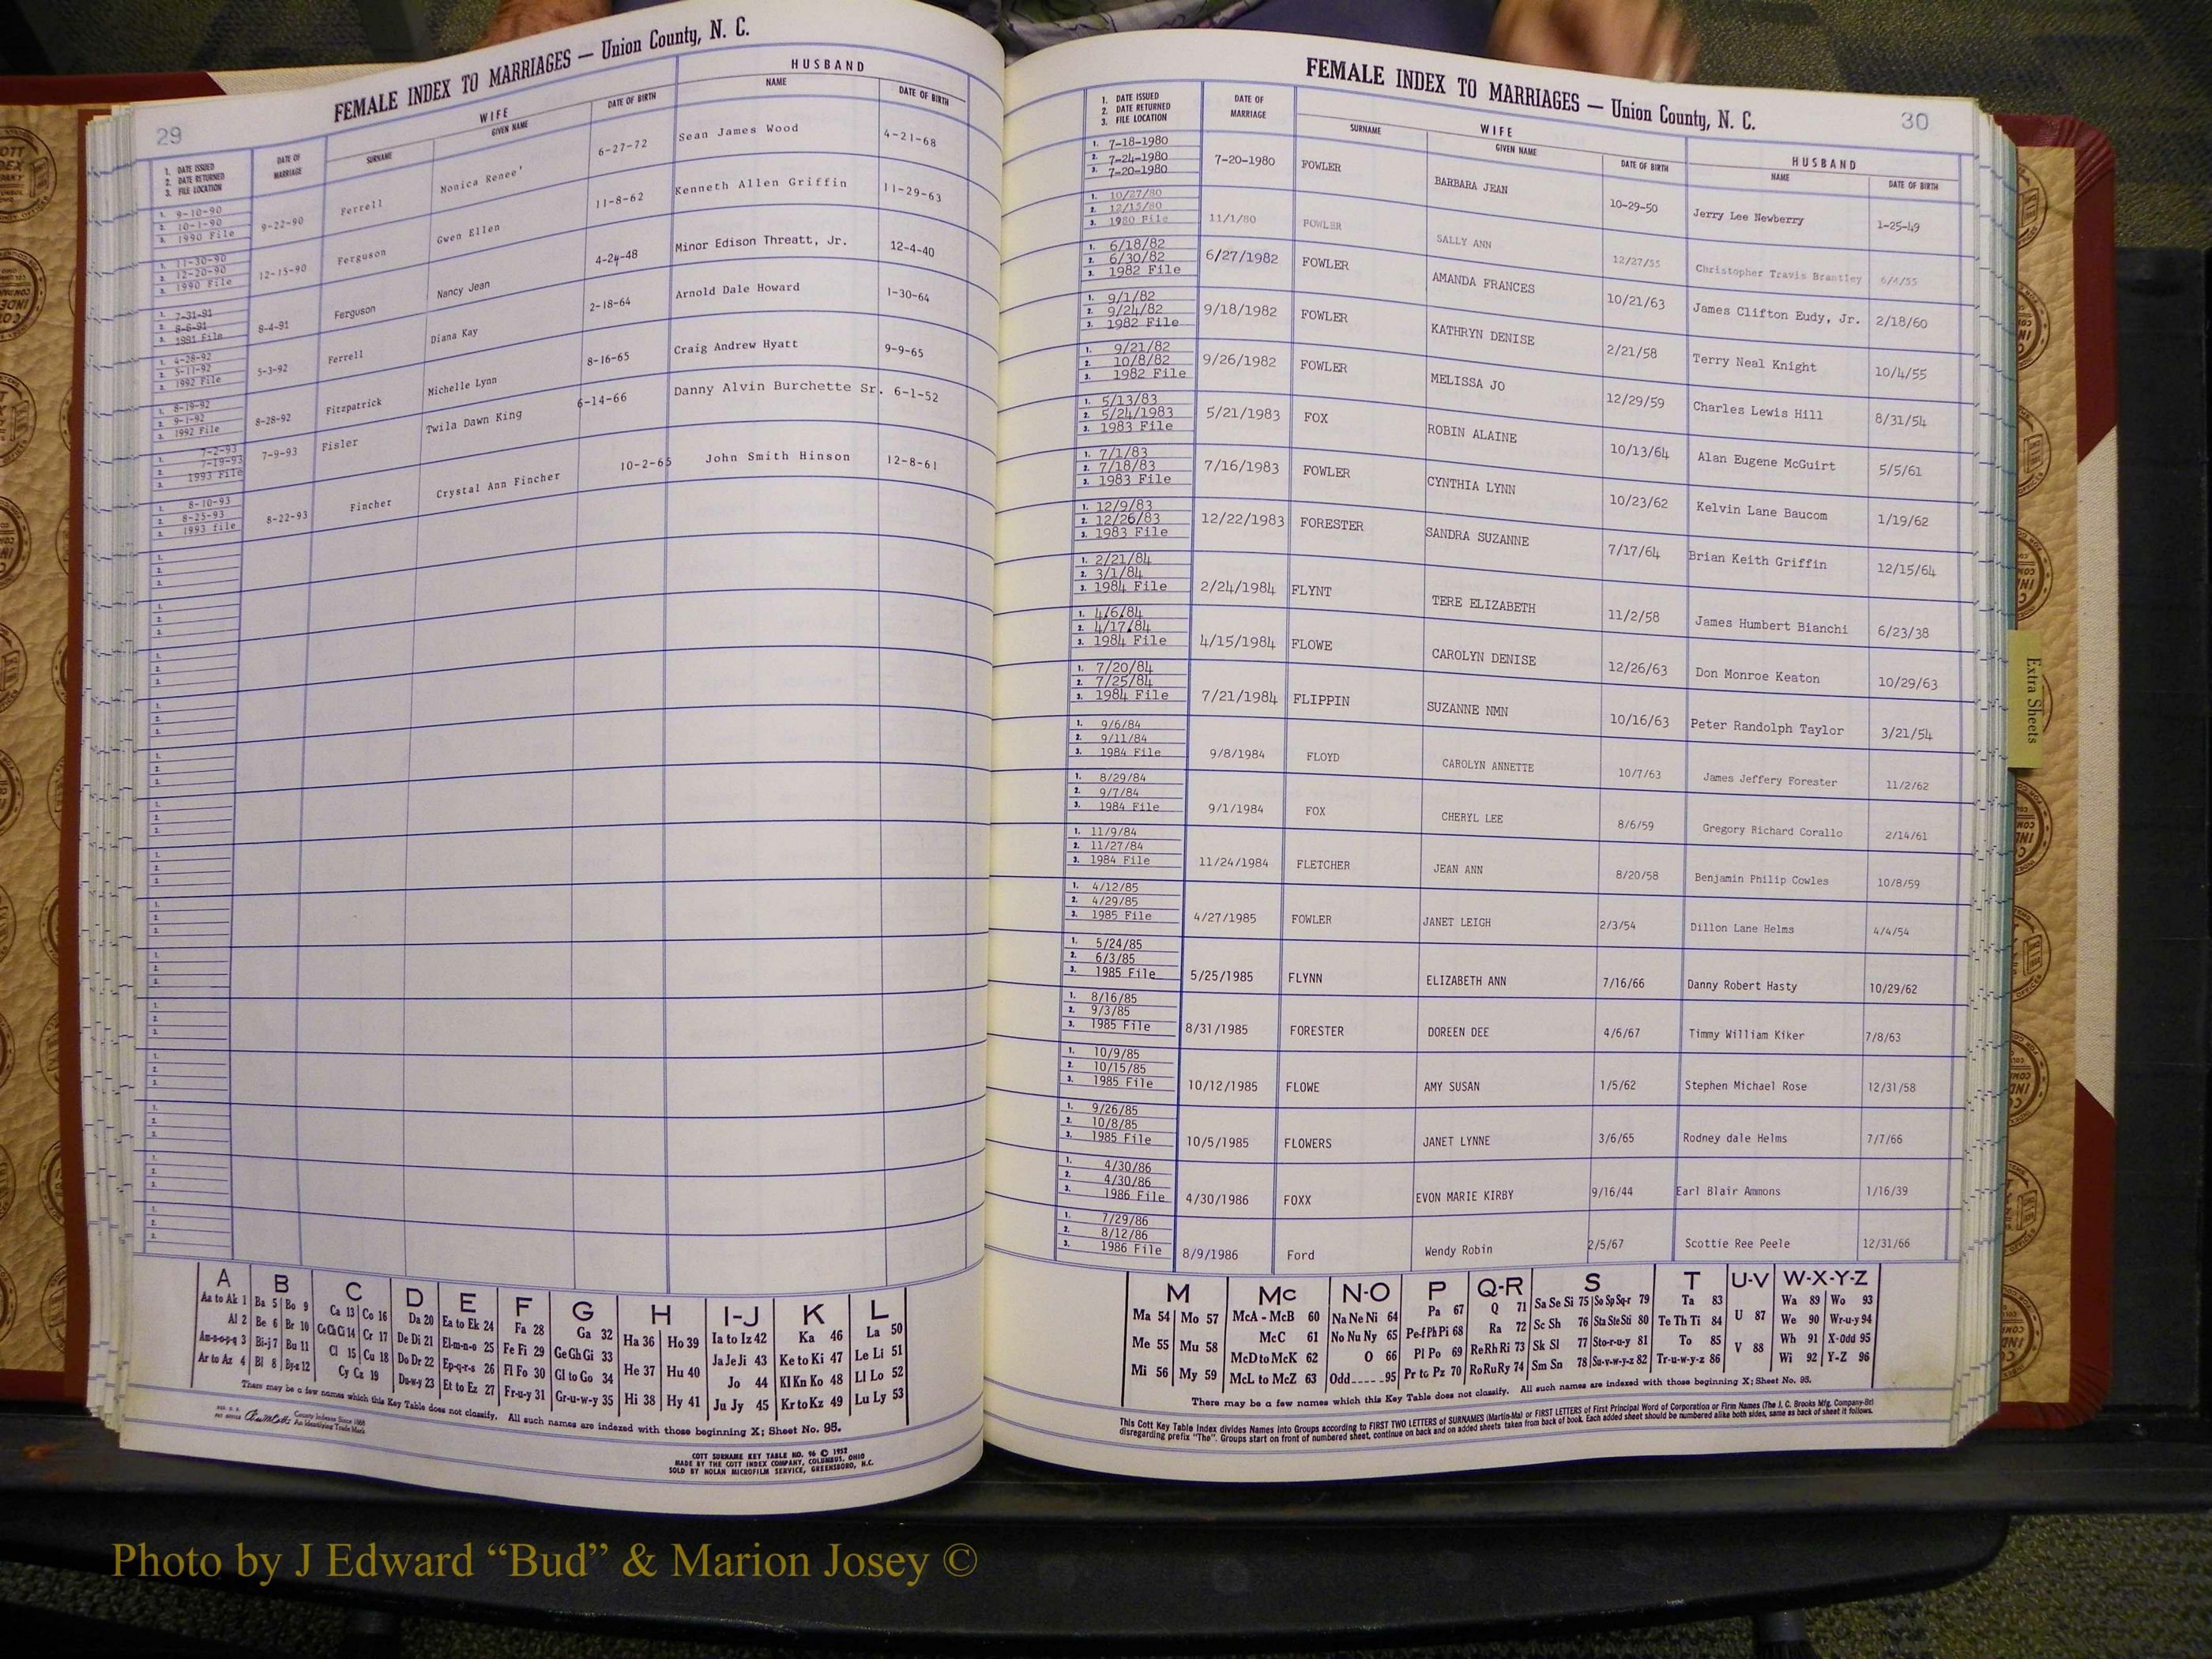 29
FEMALE INDEX TO MARRIAGES — Union County, N. C.
1. DATE ISSUED 2. DATE RETURNED 3. FILE LOCATION
DATE OF MARRIAGE
WIFE
SURNAME GIVEN NAME DATE OF BIRTH
HUSBAND
NAME DATE OF BIRTH
1. 9-10-90 2. 10-1-90 3. 1990 File 9-22-90 Ferrell Monica Renee' 6-27-72 Sean James Wood 4-21-68
1. 11-30-90 2. 12-20-90 3. 1990 File 12-15-90 Ferguson Gwen Ellen 11-8-62 Kenneth Allen Griffin 11-29-63
1. 7-31-91 2. 8-6-91 3. 1991 File 8-4-91 Ferguson Nancy Jean 4-24-48 Minor Edison Threatt, Jr. 12-4-40
1. 4-28-92 2. 5-11-92 3. 1992 File 5-3-92 Ferrell Diana Kay 2-18-64 Arnold Dale Howard 1-30-64
1. 8-19-92 2. 9-1-92 3. 1992 File 8-28-92 Fitzpatrick Michelle Lynn 8-16-65 Craig Andrew Hyatt 9-9-65
1. 7-2-93 2. 7-19-93 3. 1993 File 7-9-93 Fisler Twila Dawn King 6-14-66 Danny Alvin Burchette Sr. 6-1-52
1. 8-10-93 2. 8-25-93 3. 1993 file 8-22-93 Fincher Crystal Ann Fincher 10-2-65 John Smith Hinson 12-8-61
A B C D E F G H I-J K L
Aa to Ak 1 Ba 5 Bo 9 Ca 13 Co 16 Da 20 Ea to Ek 24 Fa 28 Ga 32 Ha 36 Ho 39 Ia to Iz 42 Ka 46 La 50
Al 2 Be 6 Br 10 Ce Ch Ci 14 Cr 17 De Di 21 El-m-n-o 25 Fe Fi 29 Ge Gh Gi 33 He 37 Hu 40 Ja Je Ji 43 Ke to Ki 47 Le Li 51
Am-n-o-p-q 3 Bi-j 7 Bu 11 Cl 15 Cu 18 Do Dr 22 Ep-q-r-s 26 Fl Fo 30 Gl to Go 34 Hi 38 Hy 41 Jo 44 Kl Kn Ko 48 Ll Lo 52
Ar to Az 4 Bl 8 By-z 12 Cy Cz 19 Du-w-y 23 Et to Ez 27 Fr-u-y 31 Gr-u-w-y 35 Ju Jy 45 Kr to Kz 49 Lu Ly 53
There may be a few names which this Key Table does not classify. All such names are indexed with those beginning X; Sheet No. 95.
County Indexes Since 1888
An Identifying Trade Mark
COTT SURNAME KEY TABLE NO. 96 © 1957
MADE BY THE COTT INDEX COMPANY, COLUMBUS, OHIO
SOLD BY NOLAN MICROFILM SERVICE, GREENSBORO, N.C.
FEMALE INDEX TO MARRIAGES — Union County, N. C.
30
1. DATE ISSUED 2. DATE RETURNED 3. FILE LOCATION
DATE OF MARRIAGE
WIFE
SURNAME GIVEN NAME DATE OF BIRTH
HUSBAND
NAME DATE OF BIRTH
1. 7-18-1980 2. 7-24-1980 3. 7-20-1980 7-20-1980 FOWLER BARBARA JEAN 10-29-50 Jerry Lee Newberry 1-25-49
1. 10/27/80 2. 12/15/80 3. 1980 File 11/1/80 FOWLER SALLY ANN 12/27/55 Christopher Travis Brantley 6/4/55
1. 6/18/82 2. 6/30/82 3. 1982 File 6/27/1982 FOWLER AMANDA FRANCES 10/21/63 James Clifton Eudy, Jr. 2/18/60
1. 9/1/82 2. 9/24/82 3. 1982 File 9/18/1982 FOWLER KATHRYN DENISE 2/21/58 Terry Neal Knight 10/4/55
1. 9/21/82 2. 10/8/82 3. 1982 File 9/26/1982 FOWLER MELISSA JO 12/29/59 Charles Lewis Hill 8/31/54
1. 5/13/83 2. 5/24/1983 3. 1983 File 5/21/1983 FOX ROBIN ALAINE 10/13/64 Alan Eugene McGuirt 5/5/61
1. 7/1/83 2. 7/18/83 3. 1983 File 7/16/1983 FOWLER CYNTHIA LYNN 10/23/62 Kelvin Lane Baucom 1/19/62
1. 12/9/83 2. 12/26/83 3. 1983 File 12/22/1983 FORESTER SANDRA SUZANNE 7/17/64 Brian Keith Griffin 12/15/64
1. 2/21/84 2. 3/1/84 3. 1984 File 2/24/1984 FLYNT TERE ELIZABETH 11/2/58 James Humbert Bianchi 6/23/38
1. 4/6/84 2. 4/17/84 3. 1984 File 4/15/1984 FLOWE CAROLYN DENISE 12/26/63 Don Monroe Keaton 10/29/63
1. 7/20/84 2. 7/25/84 3. 1984 File 7/21/1984 FLIPPIN SUZANNE NMN 10/16/63 Peter Randolph Taylor 3/21/54
1. 9/6/84 2. 9/11/84 3. 1984 File 9/8/1984 FLOYD CAROLYN ANNETTE 10/7/63 James Jeffery Forester 11/2/62
1. 8/29/84 2. 9/7/84 3. 1984 File 9/1/1984 FOX CHERYL LEE 8/6/59 Gregory Richard Corallo 2/14/61
1. 11/9/84 2. 11/27/84 3. 1984 File 11/24/1984 FLETCHER JEAN ANN 8/20/58 Benjamin Philip Cowles 10/8/59
1. 4/12/85 2. 4/29/85 3. 1985 File 4/27/1985 FOWLER JANET LEIGH 2/3/54 Dillon Lane Helms 4/4/54
1. 5/24/85 2. 6/3/85 3. 1985 File 5/25/1985 FLYNN ELIZABETH ANN 7/16/66 Danny Robert Hasty 10/29/62
1. 8/16/85 2. 9/3/85 3. 1985 File 8/31/1985 FORESTER DOREEN DEE 4/6/67 Timmy William Kiker 7/8/63
1. 10/9/85 2. 10/15/85 3. 1985 File 10/12/1985 FLOWE AMY SUSAN 1/5/62 Stephen Michael Rose 12/31/58
1. 9/26/85 2. 10/8/85 3. 1985 File 10/5/1985 FLOWERS JANET LYNNE 3/6/65 Rodney dale Helms 7/7/66
1. 4/30/86 2. 4/30/86 3. 1986 File 4/30/1986 FOXX EVON MARIE KIRBY 9/16/44 Earl Blair Ammons 1/16/39
1. 7/29/86 2. 8/12/86 3. 1986 File 8/9/1986 Ford Wendy Robin 2/5/67 Scottie Ree Peele 12/31/66
M Mc N-O P Q-R S T U-V W-X-Y-Z
Ma 54 Mo 57 McA - McB 60 Na Ne Ni 64 Pa 67 Q 71 Sa Se Si 75 So Sp Sq-r 79 Ta 83 U 87 Wa 89 Wo 93
Me 55 Mu 58 McC 61 No Nu Ny 65 Pe-f Ph Pi 68 Ra 72 Sc Sh 76 Sta Ste Sti 80 Te Th Ti 84 V 88 We 90 Wr-u-y 94
Mi 56 My 59 McD to McK 62 O 66 Pl Po 69 Re Rh Ri 73 Sk Sl 77 Sto-r-u-y 81 To 85 Wh 91 X-Odd 95
McL to McZ 63 Odd 95 Pr to Pz 70 Ro Ru Ry 74 Sm Sn 78 Su-v-w-y-z 82 Tr-u-w-y-z 86 Wi 92 Y-Z 96
There may be a few names which this Key Table does not classify. All such names are indexed with those beginning X; Sheet No. 95.
This Cott Key Table Index divides Names into Groups according to FIRST TWO LETTERS of SURNAMES (Martin-Ma) or FIRST LETTERS of First Principal Word of Corporation or Firm Names (The J. C. Brooks Mfg. Company-Br)
disregarding prefix "The". Groups start on front of numbered sheet, continue on back and on added sheets taken from back of book. Each added sheet should be numbered alike both sides, same as back of sheet it follows.
Extra Sheets
Photo by J Edward “Bud” & Marion Josey ©